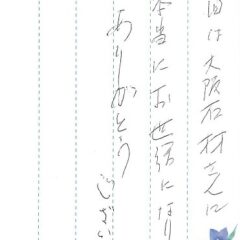 回は大阪石材さんに
本当にお世話になり
ありがとうござい